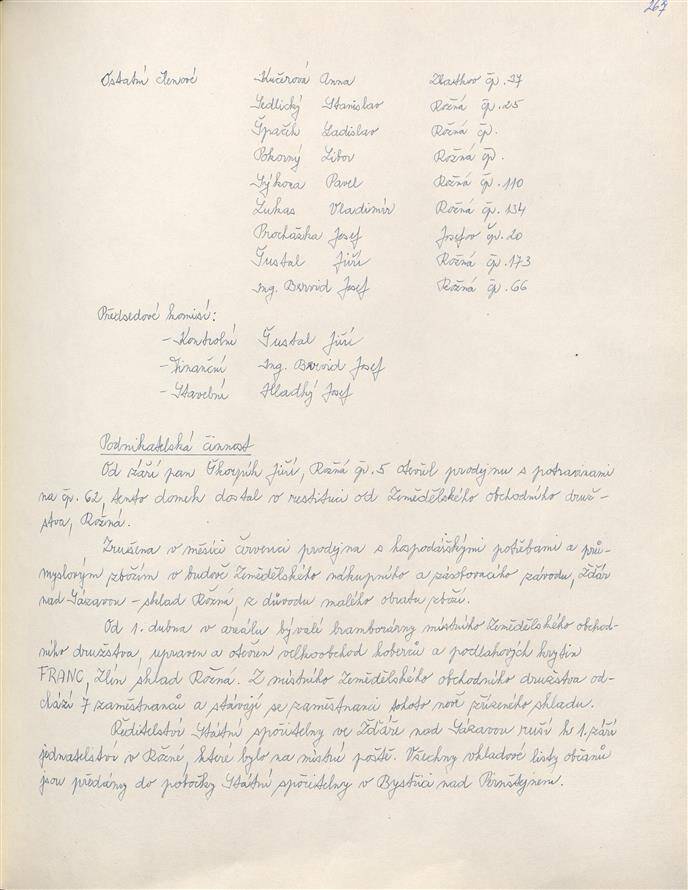 267
Ostatní členové Kučerová Anna Zlatkov čp. 27
Sedlický Stanislav Rožná čp. 25
Špaček Ladislav Rožná čp.
Pokorný Libor Rožná čp.
Sýkora Pavel Rožná čp. 110
Lukas Vladimír Rožná čp. 134
Procházka Josef Josefov čp. 20
Gustal Jiří Rožná čp. 173
Ing. Josef Rožná čp. 66
Předsedové komisí:
- Kontrolní Gustal Jiří
- Finanční Ing. Josef
- Stavební Hladký Josef
Podnikatelská činnost
Od září pan Jiří, Rožná čp. 5 otevřel prodejnu s potravinami
na čp. 62, tento domek dostal v restituci od Zemědělského obchodního druž-
stva, Rožná.
Zrušena v měsíci červenci prodejna s hospodářskými potřebami a prů-
myslovým zbožím v budově Zemědělského nákupního a zásobovacího závodu, Žďár
nad Sázavou - sklad Rožná, z důvodu malého obratu zboží.
Od 1. dubna v areálu bývalé bramborárny místního Zemědělského obchod-
ního družstva, upraven a otevřen velkoobchod koberců a podlahových krytin
FRANC, Zlín sklad Rožná. Z místního Zemědělského obchodního družstva od-
chází 7 zaměstnanců a stávají se zaměstnanci tohoto nově zřízeného skladu.
Ředitelství Státní spořitelny ve Žďáře nad Sázavou ruší k 1. září
jednatelství v Rožné, které bylo na místní poště. Všechny vkladové listy občanů
jsou předány do pobočky Státní spořitelny v Bystřici nad Pernštejnem.